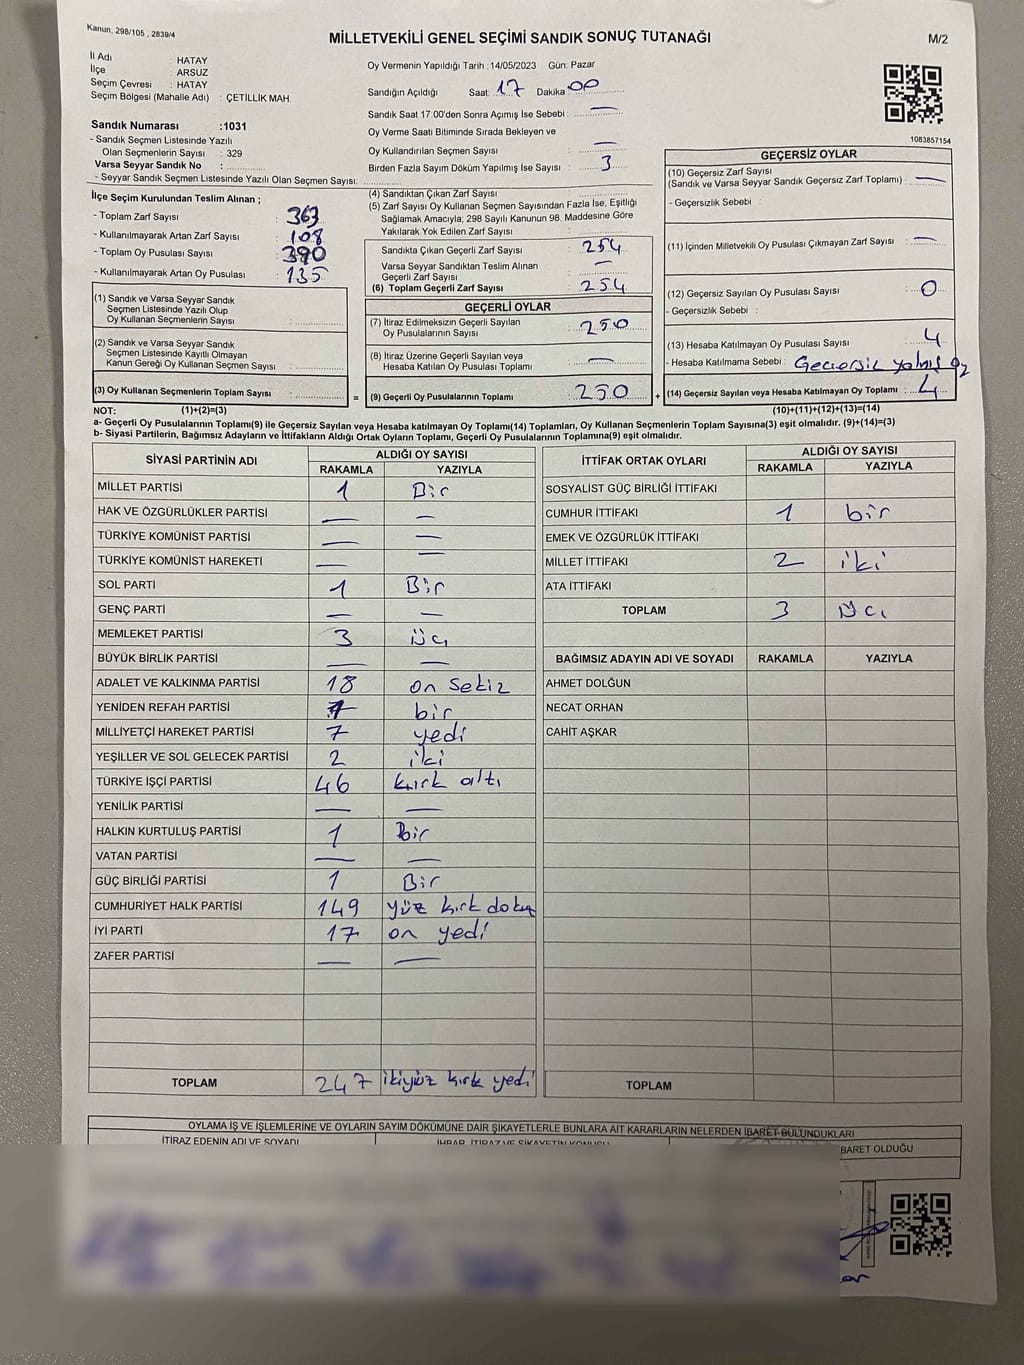 Kanun, 298/105 , 2839/4
MİLLETVEKİLİ GENEL SEÇİMİ SANDIK SONUÇ TUTANAĞI
M/2
İl Adı : HATAY
İlçe : ARSUZ
Seçim Çevresi : HATAY
Seçim Bölgesi (Mahalle Adı) : ÇETİLLİK MAH.
Sandık Numarası :1031
- Sandık Seçmen Listesinde Yazılı
Olan Seçmenlerin Sayısı : 329
Varsa Seyyar Sandık No :
- Seyyar Sandık Seçmen Listesinde Yazılı Olan Seçmen Sayısı:
Oy Vermenin Yapıldığı Tarih : 14/05/2023 Gün: Pazar
Sandığın Açıldığı Saat: 17 Dakika 00
Sandık Saat 17:00'den Sonra Açımış İse Sebebi : —
Oy Verme Saati Bitiminde Sırada Bekleyen ve
Oy Kullandırılan Seçmen Sayısı : —
Birden Fazla Sayım Döküm Yapılmış İse Sayısı : 3
1083857154
İlçe Seçim Kurulundan Teslim Alınan ;
- Toplam Zarf Sayısı : 363
- Kullanılmayarak Artan Zarf Sayısı : 108
- Toplam Oy Pusulası Sayısı : 390
- Kullanılmayarak Artan Oy Pusulası : 135
(1) Sandık ve Varsa Seyyar Sandık
Seçmen Listesinde Yazılı Olup
Oy Kullanan Seçmenlerin Sayısı :
(2) Sandık ve Varsa Seyyar Sandık
Seçmen Listesinde Kayıtlı Olmayan
Kanun Gereği Oy Kullanan Seçmen Sayısı :
(3) Oy Kullanan Seçmenlerin Toplam Sayısı :
(4) Sandıktan Çıkan Zarf Sayısı :
(5) Zarf Sayısı Oy Kullanan Seçmen Sayısından Fazla İse, Eşitliği
Sağlamak Amacıyla; 298 Sayılı Kanunun 98. Maddesine Göre
Yakılarak Yok Edilen Zarf Sayısı :
Sandıkta Çıkan Geçerli Zarf Sayısı : 254
Varsa Seyyar Sandıktan Teslim Alınan
Geçerli Zarf Sayısı : —
(6) Toplam Geçerli Zarf Sayısı : 254
GEÇERLİ OYLAR
(7) İtiraz Edilmeksizin Geçerli Sayılan
Oy Pusulalarının Sayısı : 250
(8) İtiraz Üzerine Geçerli Sayılan veya
Hesaba Katılan Oy Pusulası Toplamı : —
= (9) Geçerli Oy Pusulalarının Toplamı : 250
GEÇERSİZ OYLAR
(10) Geçersiz Zarf Sayısı
(Sandık ve Varsa Seyyar Sandık Geçersiz Zarf Toplamı) : —
- Geçersizlik Sebebi :
(11) İçinden Milletvekili Oy Pusulası Çıkmayan Zarf Sayısı : —
(12) Geçersiz Sayılan Oy Pusulası Sayısı : 0
- Geçersizlik Sebebi :
(13) Hesaba Katılmayan Oy Pusulası Sayısı : 4
- Hesaba Katılmama Sebebi : Geçersiz yalnış oy
+ (14) Geçersiz Sayılan veya Hesaba Katılmayan Oy Toplamı : 4
NOT: (1)+(2)=(3) (10)+(11)+(12)+(13)=(14)
a- Geçerli Oy Pusulalarının Toplamı(9) ile Geçersiz Sayılan veya Hesaba katılmayan Oy Toplamı(14) Toplamları, Oy Kullanan Seçmenlerin Toplam Sayısına(3) eşit olmalıdır. (9)+(14)=(3)
b- Siyasi Partilerin, Bağımsız Adayların ve İttifakların Aldığı Ortak Oyların Toplamı, Geçerli Oy Pusulalarının Toplamına(9) eşit olmalıdır.
SİYASİ PARTİNİN ADI ALDIĞI OY SAYISI
RAKAMLA YAZIYLA
MİLLET PARTİSİ 1 Bir
HAK VE ÖZGÜRLÜKLER PARTİSİ — —
TÜRKİYE KOMÜNİST PARTİSİ — —
TÜRKİYE KOMÜNİST HAREKETİ — —
SOL PARTİ 1 Bir
GENÇ PARTİ — —
MEMLEKET PARTİSİ 3 üç
BÜYÜK BİRLİK PARTİSİ — —
ADALET VE KALKINMA PARTİSİ 18 on sekiz
YENİDEN REFAH PARTİSİ 1 bir
MİLLİYETÇİ HAREKET PARTİSİ 7 yedi
YEŞİLLER VE SOL GELECEK PARTİSİ 2 iki
TÜRKİYE İŞÇİ PARTİSİ 46 kırk altı
YENİLİK PARTİSİ — —
HALKIN KURTULUŞ PARTİSİ 1 Bir
VATAN PARTİSİ — —
GÜÇ BİRLİĞİ PARTİSİ 1 Bir
CUMHURİYET HALK PARTİSİ 149 yüz kırk dokuz
İYİ PARTİ 17 on yedi
ZAFER PARTİSİ — —
TOPLAM 247 ikiyüz kırk yedi
İTTİFAK ORTAK OYLARI ALDIĞI OY SAYISI
RAKAMLA YAZIYLA
SOSYALİST GÜÇ BİRLİĞİ İTTİFAKI
CUMHUR İTTİFAKI 1 bir
EMEK VE ÖZGÜRLÜK İTTİFAKI
MİLLET İTTİFAKI 2 iki
ATA İTTİFAKI
TOPLAM 3 üç
BAĞIMSIZ ADAYIN ADI VE SOYADI RAKAMLA YAZIYLA
AHMET DOLĞUN
NECAT ORHAN
CAHİT AŞKAR
TOPLAM
OYLAMA İŞ VE İŞLEMLERİNE VE OYLARIN SAYIM DÖKÜMÜNE DAİR ŞİKAYETLERLE BUNLARA AİT KARARLARIN NELERDEN İBARET BULUNDUKLARI
İTİRAZ EDENİN ADI VE SOYADI İHBAR, İTİRAZ VE ŞİKAYETİN KONUSU BARET OLDUĞU